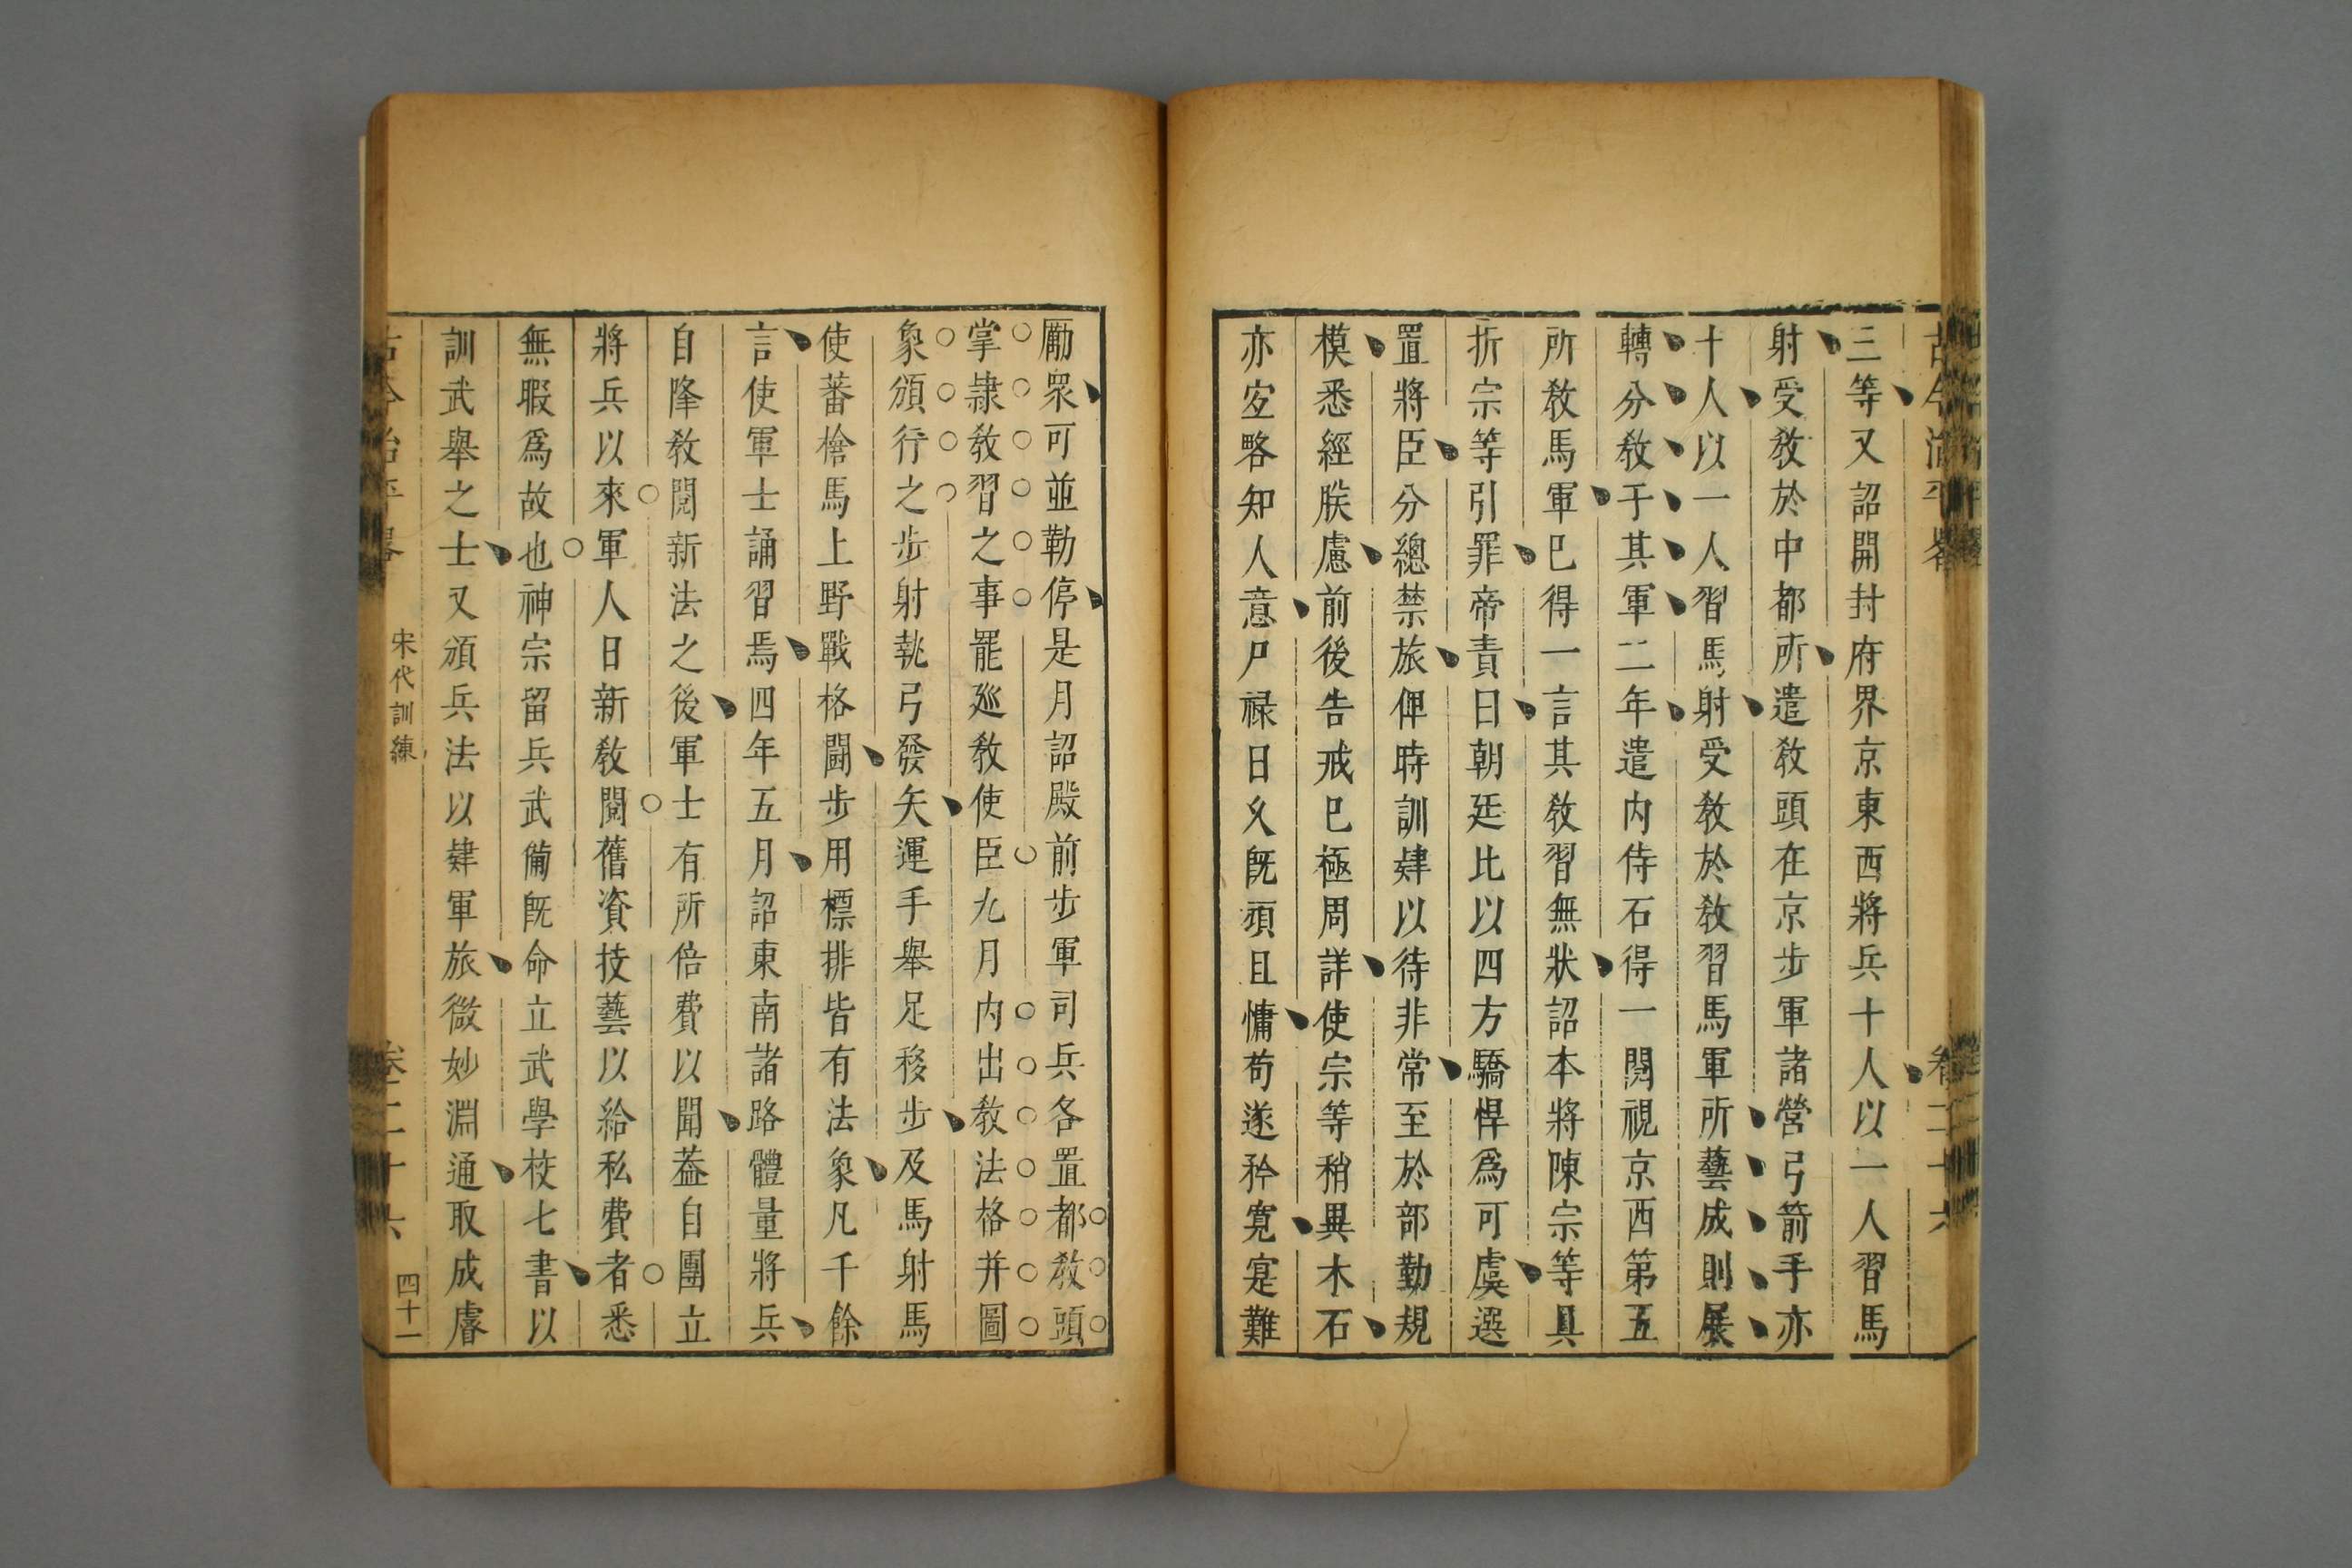 三等又詔開封府界京東西將兵十人以一人習馬
射受教於中都所遣教頭在京步軍諸營弓箭手亦
十人以一人習馬射受教於教習馬軍所藝成則展
轉分教于其軍二年遣内侍石得一閱視京西第五
所教馬軍巳得一言其教習無狀詔本將陳宗等具
折宗等引罪帝責曰朝廷比以四方驕悍為可虞選
置將臣分總禁旅俾時訓肄以待非常至於部勤規
模悉經朕慮前後告戒巳極周詳使宗等稍異木石
亦宜略知人意尸禄日乆旣頑且慵苟遂矜寛寔難
勵衆可並勒停是月詔殿前步軍司兵各置都教頭
掌隷教習之事罷廵教使臣九月内出教法格并圖
象頒行之步射執弓發矢運手舉足移步及馬射馬
使蕃槍馬上野戰格鬬步用標排皆有法象凡千餘
言使軍士誦習焉四年五月詔東南諸路體量將兵
自降教閱新法之後軍士有所倍費以聞葢自團立
將兵以來軍人日新教閱舊資技藝以給私費者悉
無暇爲故也神宗留兵武備旣命立武學校七書以
訓武舉之士又頒兵法以肄軍旅微妙淵通取成睿
宋代訓練
卷二十六
四十一